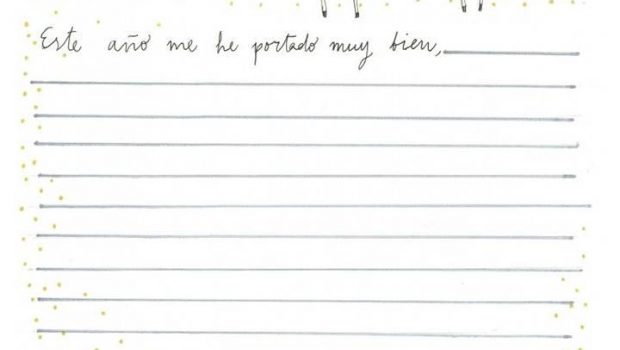 Este año me he portado muy bien,